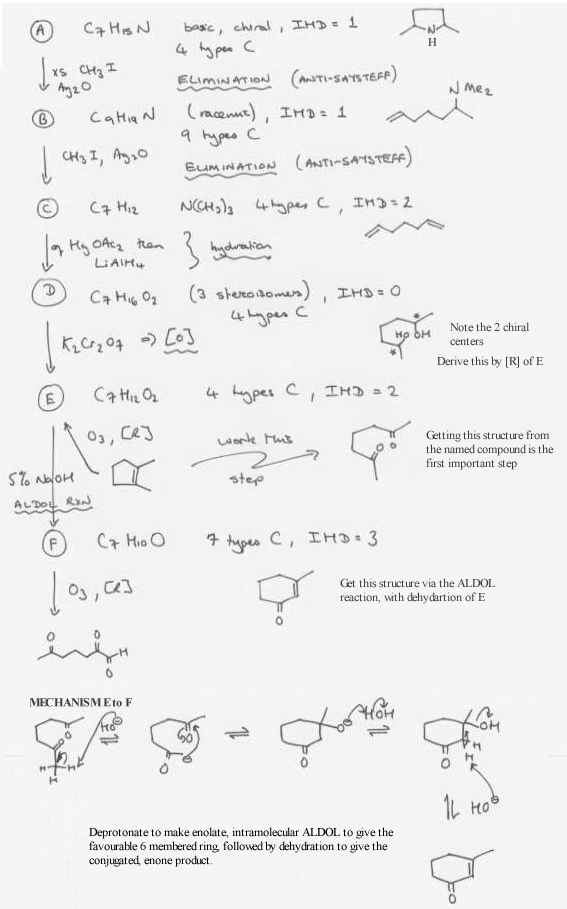 A C7H15N basic, chiral, IHD = 1
4 types C
N
H
xs CH3I
Ag2O
ELIMINATION (ANTI-SAYSTEFF)
NMe2
B C9H19N (racemic), IHD = 1
9 types C
CH3I, Ag2O
ELIMINATION (ANTI-SAYSTEFF)
C C7H12 N(CH3)3 4 types C, IHD = 2
Hg OAc2 then
LiAlH4
hydration
D C7H16O2 (3 stereoisomers), IHD = 0
4 types C
* HO OH *
Note the 2 chiral
centers
Derive this by [R] of E
K2Cr2O7 => [O]
E C7H12O2 4 types C, IHD = 2
O3, [R]
work this
step
O O
Getting this structure from
the named compound is the
first important step
5% NaOH
ALDOL RXN
F C7H10O 7 types C, IHD = 3
O3, [R]
O
Get this structure via the ALDOL
reaction, with dehydartion of E
O O H
O
MECHANISM E to F
HO⊖
O O H H H
O O ⊖
O⊖ H OH
O
OH
H H
O
HO⊖
Deprotonate to make enolate, intramolecular ALDOL to give the
favourable 6 membered ring, followed by dehydration to give the
conjugated, enone product.
O